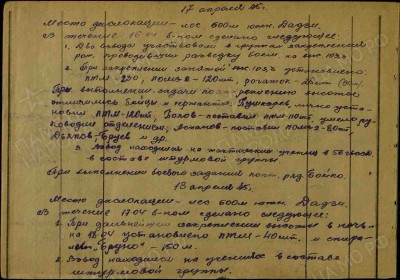 17 апреля 45.
Место дислокации – лес 500 м южн. Дадзи.
В течение 16.04 б-ном сделано следующее:
1. Два взвода участвовали в группах закрепления
рот, проводивших разведку боем на выс. 103
2. При закреплении занятой выс. 103 установлено
ПТМ-230, ПОМЗ-2-120шт, рогаток
При выполнении задачи по закреплению высоты
отличились бойцы и сержанты: лично уста-
новил ПТМ 120шт, Попов - поставил ПТМ 110шт, умело ру-
ководил отделением, поставил ПОМЗ-2-80шт,
и др.
3. Взвод находился на тактических учениях в
в составе штурмовой группы
При выполнении боевого задания ряд. Бойко.
18 апреля 45.
Место дислокации – лес 500 м южн. Дадзи.
В течение 17.04 б-ном сделано следующее:
1. При дальнейшем закреплении высоты в ночь
на 18.04 установлено ПТМ-40шт. и спира-
лей „Бруно" - 150 м.
2. Взвод находился на учениях в составе
штурмовой группы.